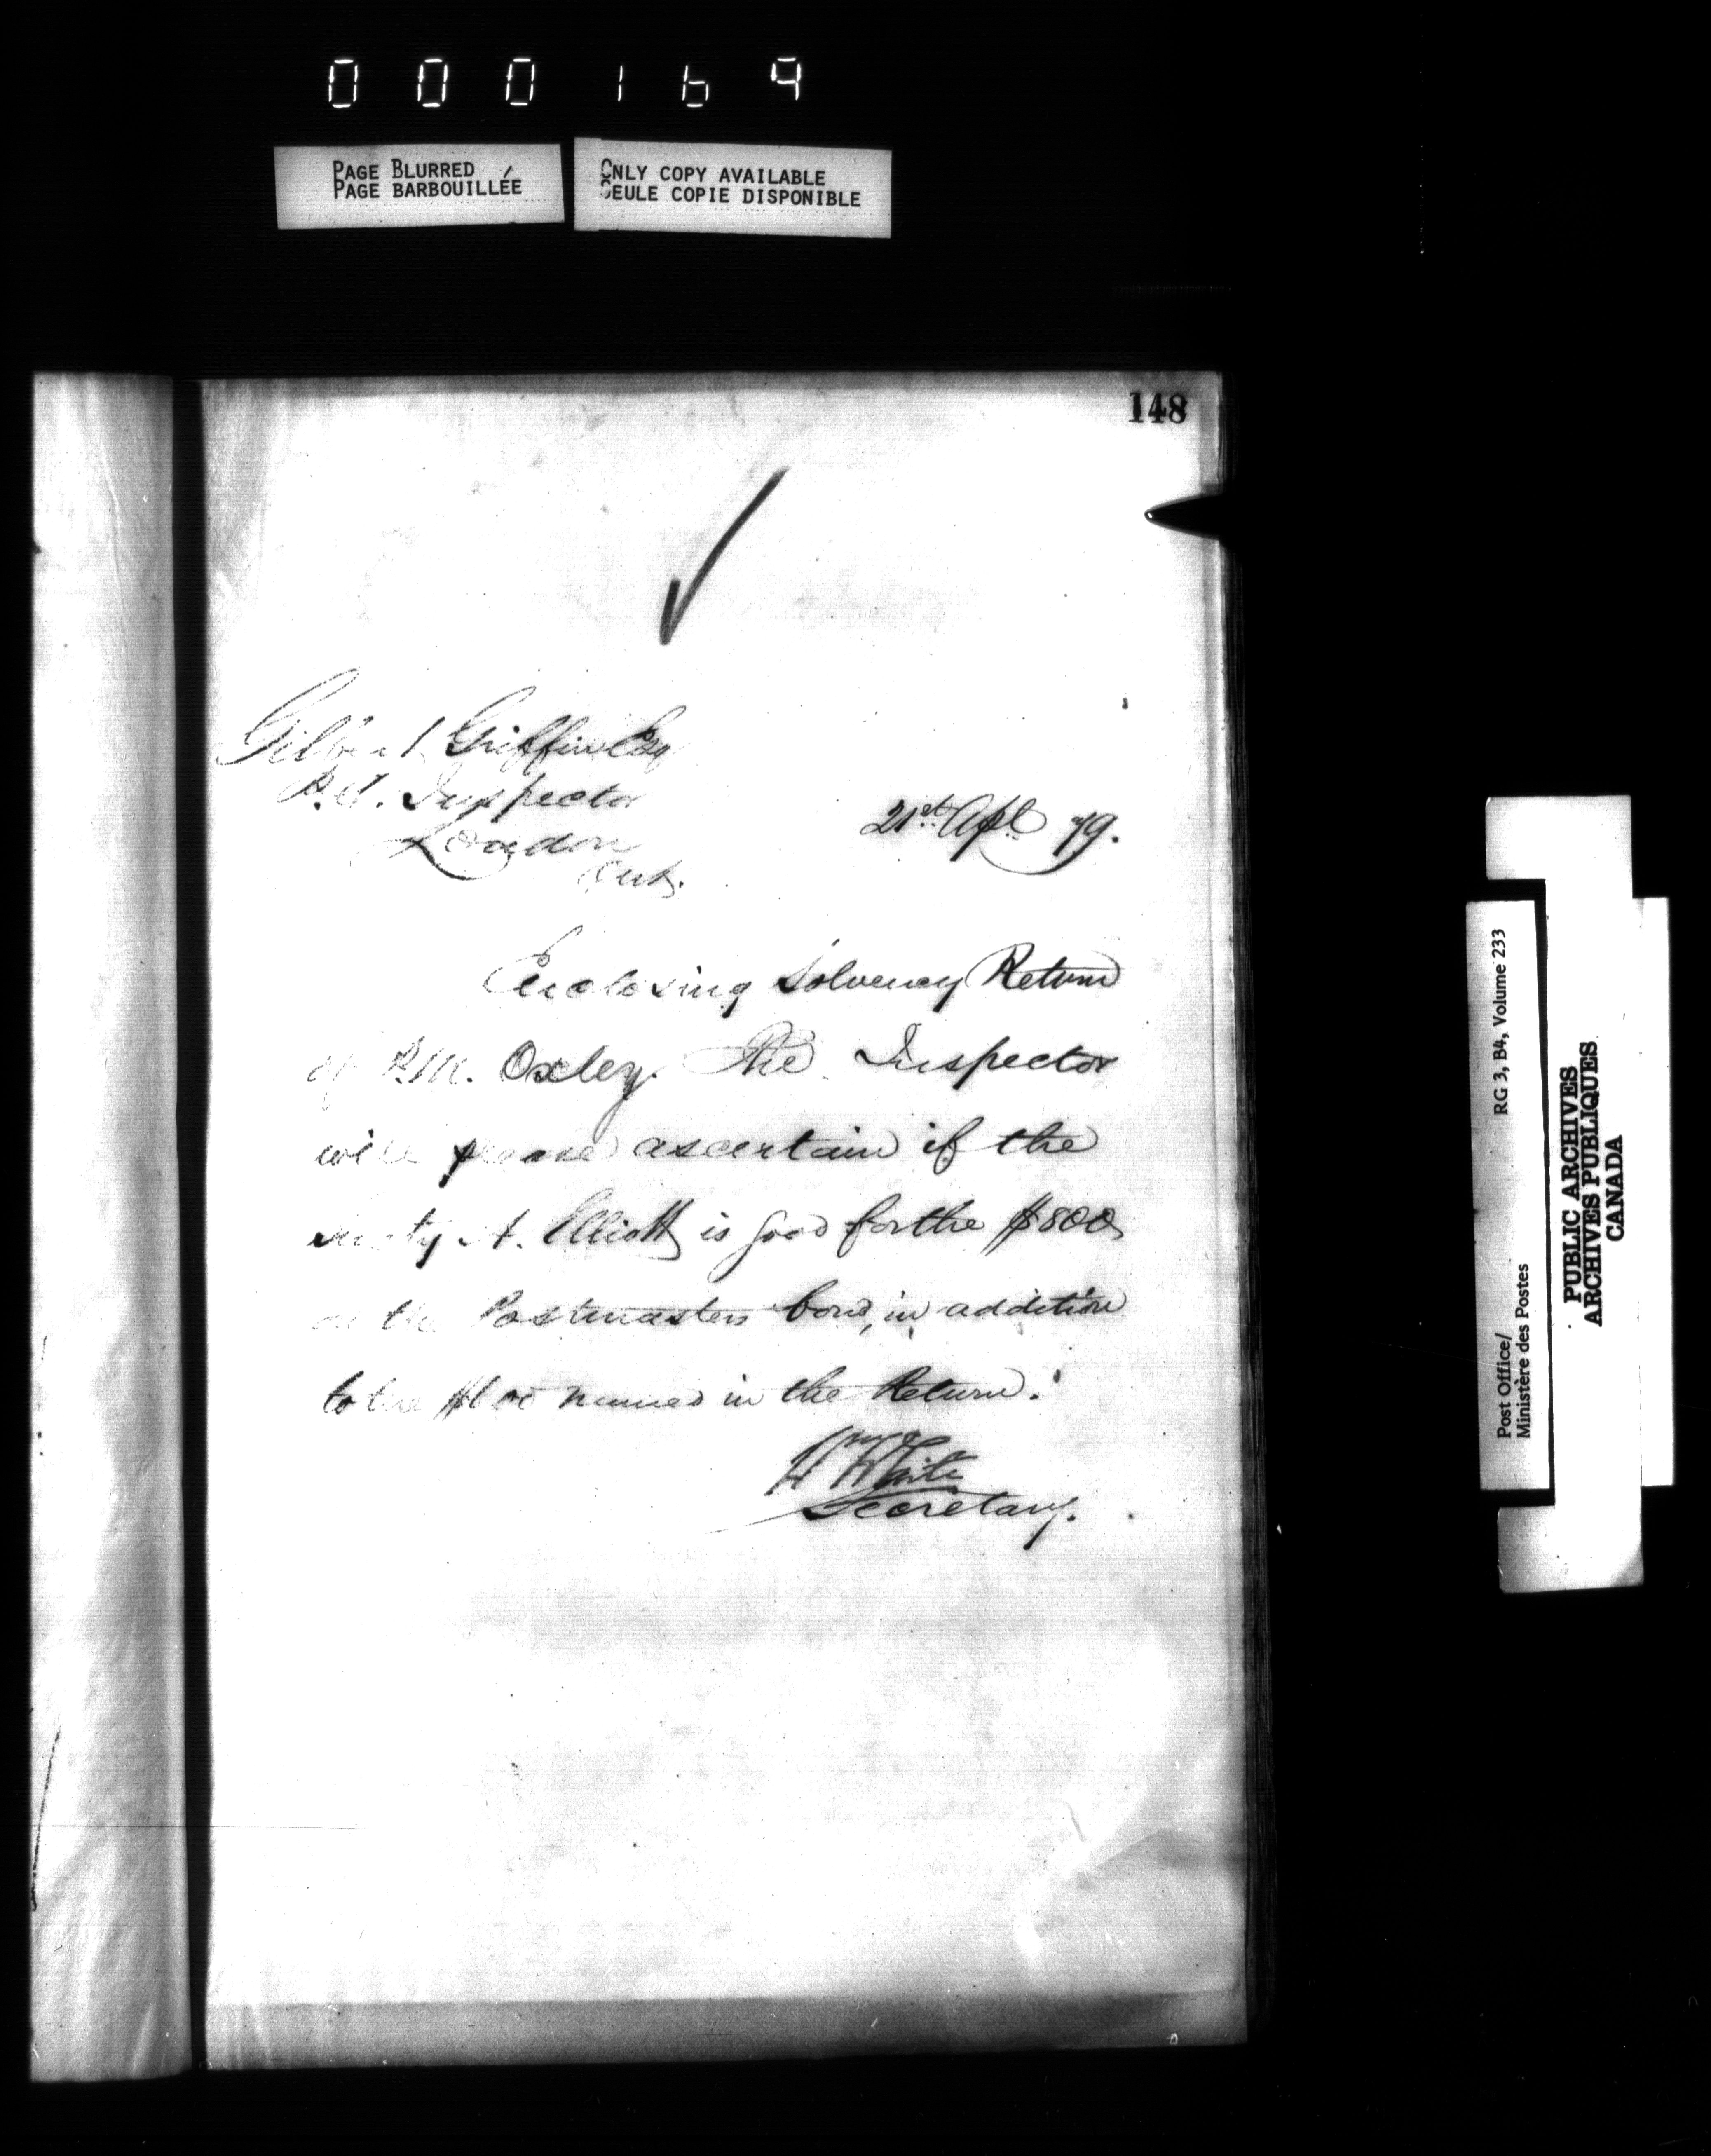 000169
PAGE BLURRED
PAGE BARBOUILLÉE
ONLY COPY AVAILABLE
SEULE COPIE DISPONIBLE
148
Gilbert Griffin Esq
P.O. Inspector
London
Ont.
21st Apl 79.
Enclosing Solvency Return
of P.M. Oxley. The Inspector
will please ascertain if the
surety A. Elliott is good for the $800
on the Postmasters bond, in addition
to the $100 named in the Return.
Wm White
Secretary.
Post Office/
Ministère des Postes
RG 3, B4, Volume 233
PUBLIC ARCHIVES
ARCHIVES PUBLIQUES
CANADA